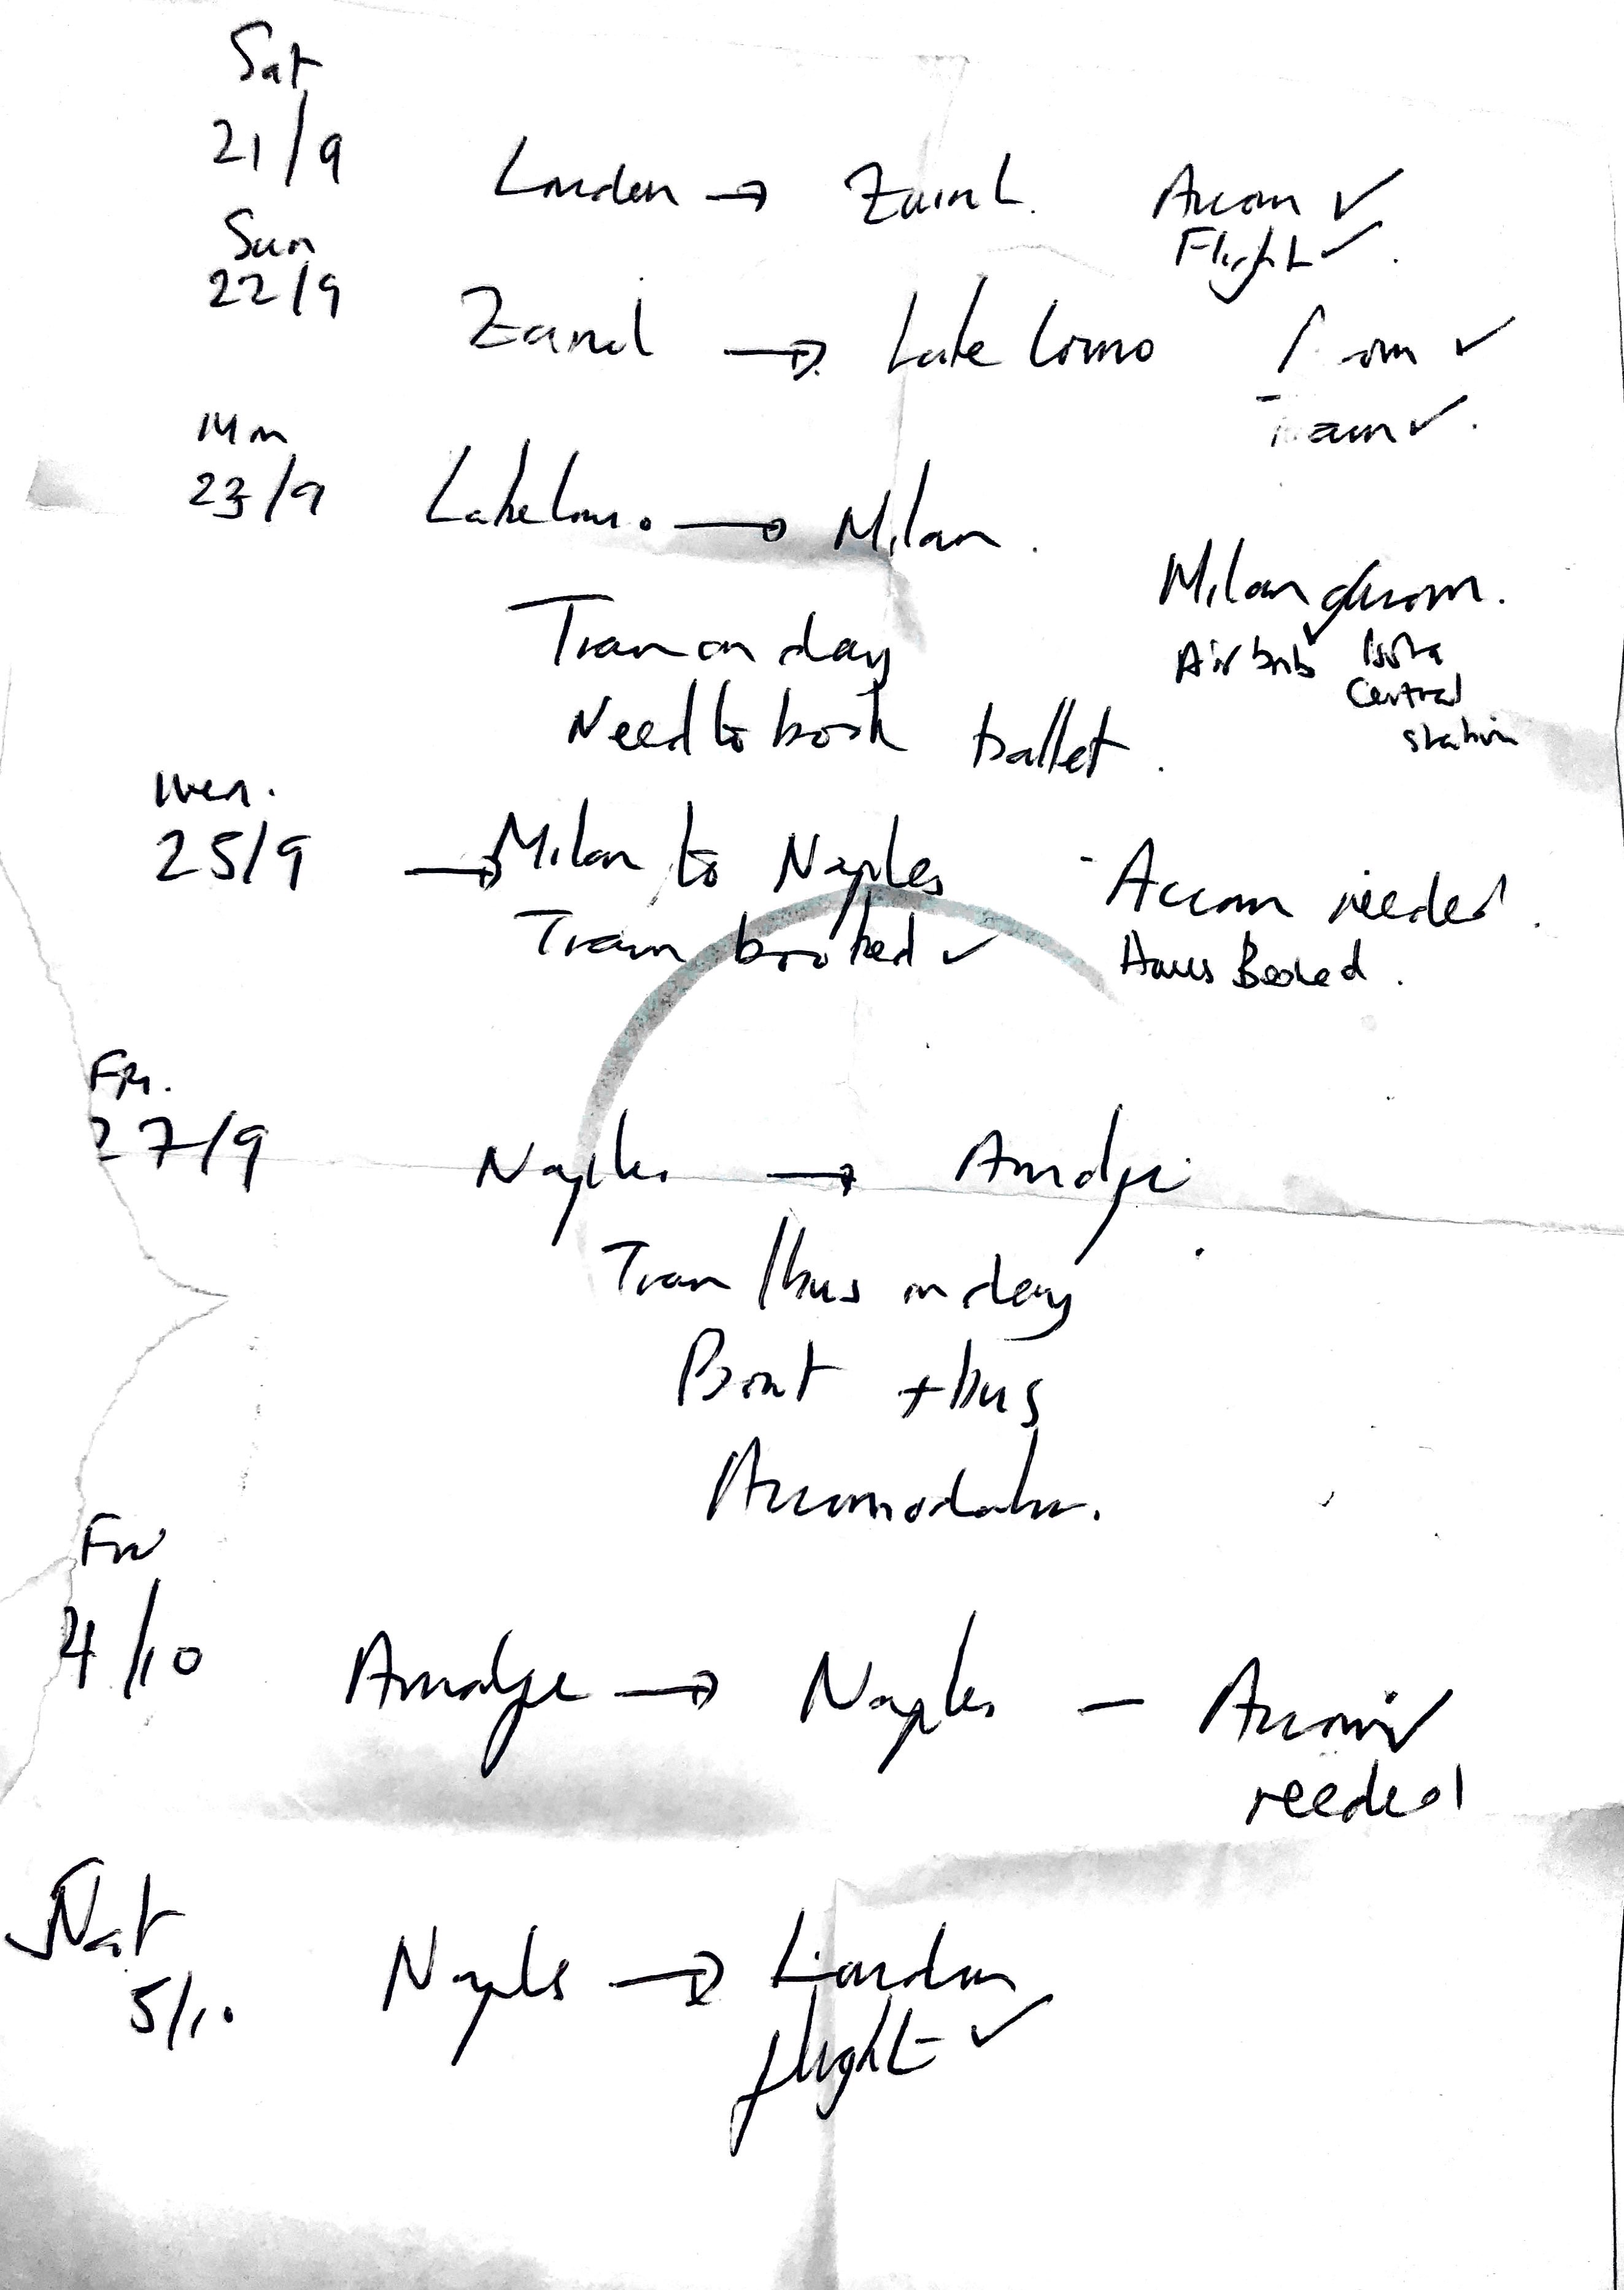 Sat
21/9 London → Zurich. Accom ✓
Flight ✓
Sun
22/9 Zurich → Lake Como Accom ✓
Train ✓
Mon
23/9 Lake Como → Milan.
Milan accom.
Train on day Airbnb ✓
Central
Need to book ballet. station
Wed.
25/9 → Milan to Naples - Accom needed.
Train booked ✓ Booked.
Fri.
27/9 Naples → Amalfi
Train/bus on day
Boat + bus
Accomodation.
Fri
4/10 Amalfi → Naples – Accom ✓
needed
Sat
5/10 Naples → London
flight ✓